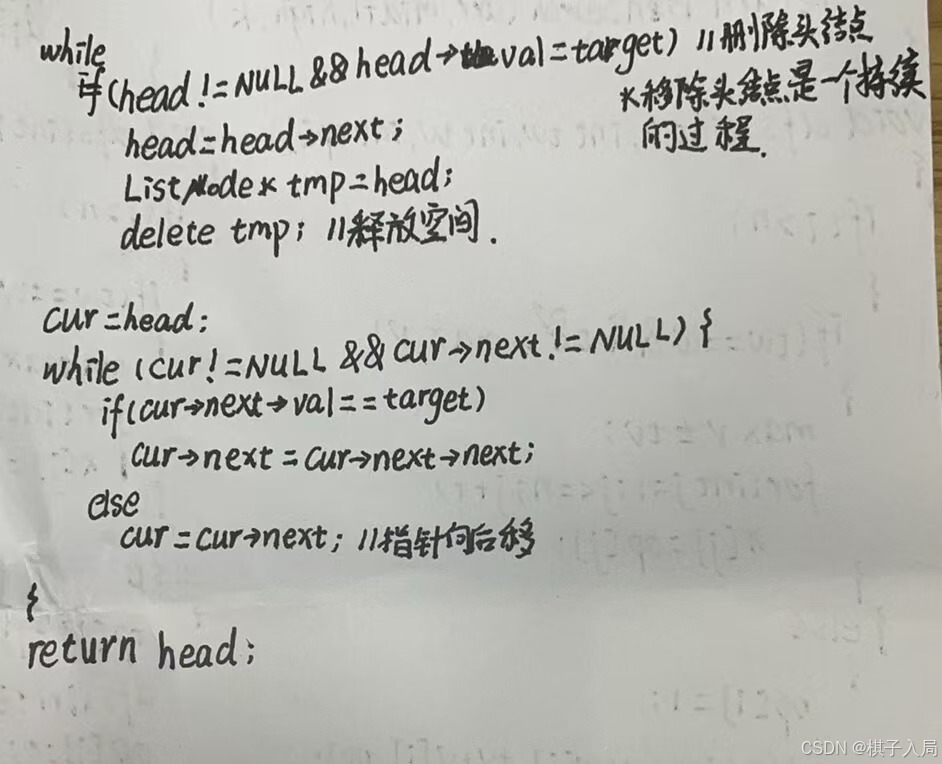 while
if(head!=NULL&&head→val=target) //删除头结点
*移除头结点是一个持续
的过程.
head=head→next;
ListNode* tmp=head;
delete tmp; //释放空间.
cur=head;
while(cur!=NULL&&cur→next!=NULL){
if(cur→next→val==target)
cur→next=cur→next→next;
else
cur=cur→next; //指针向后移
{
return head;
CSDN @棋子入局